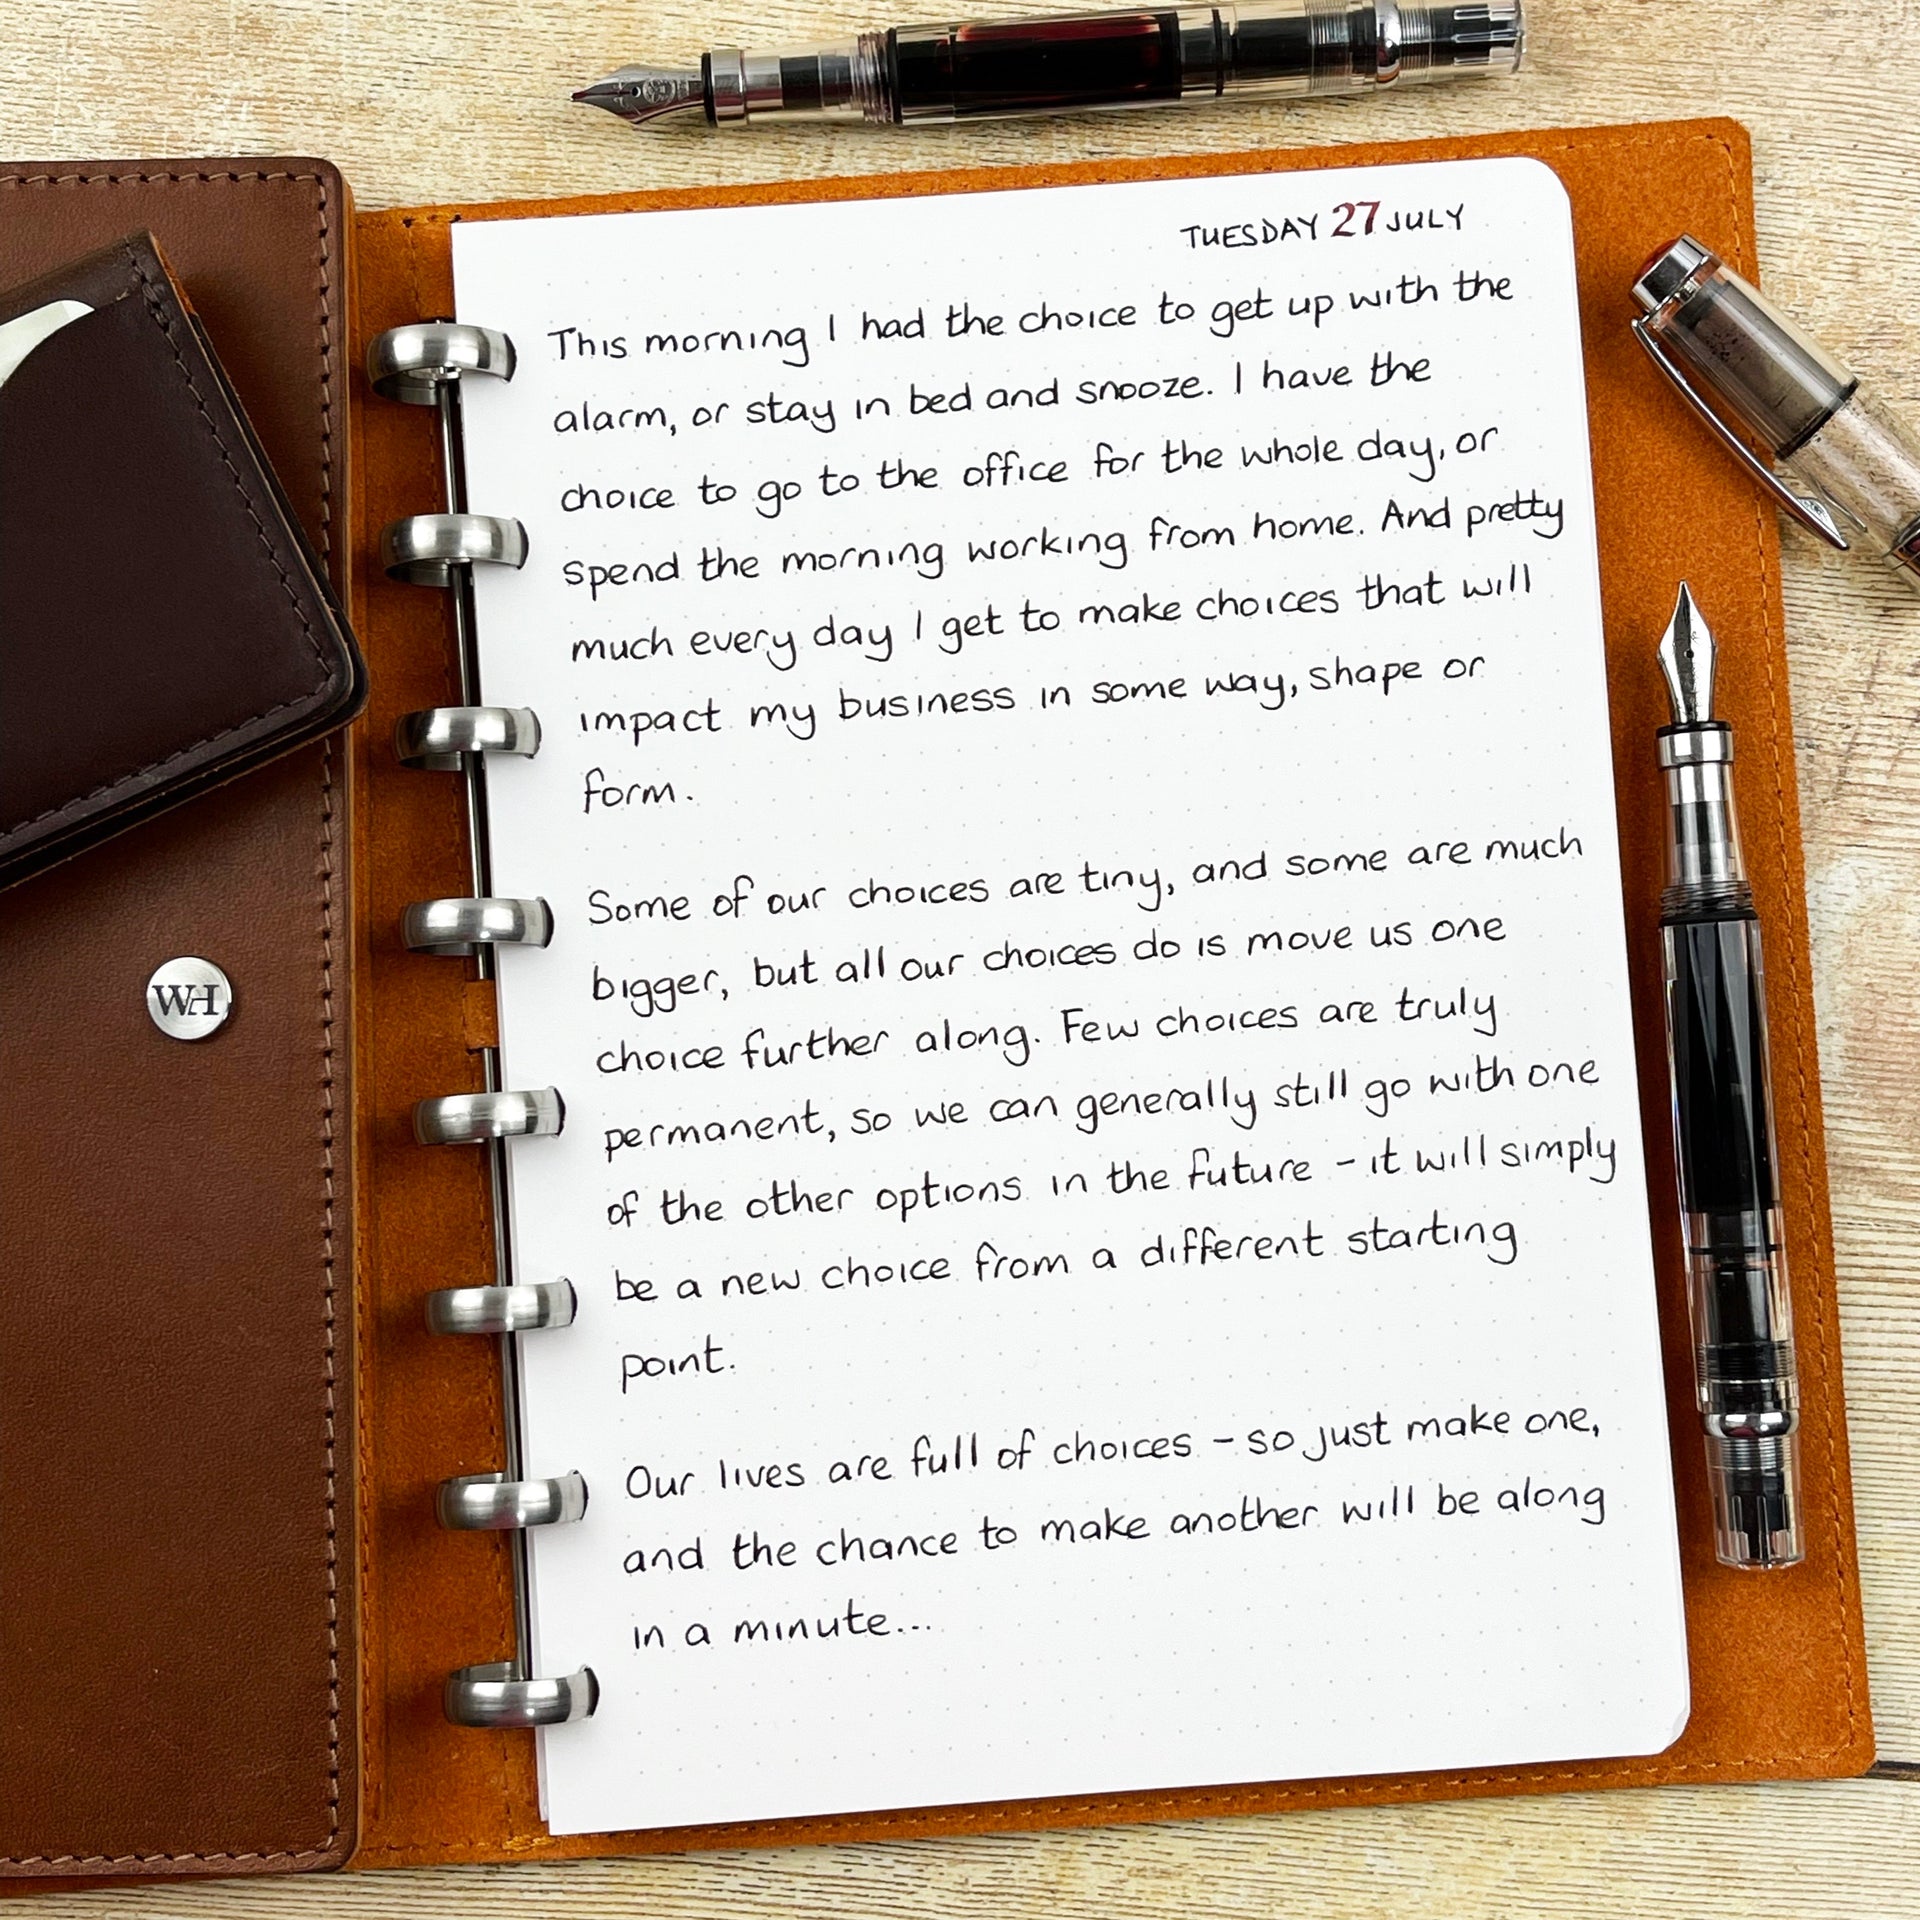 TUESDAY 27 JULY
This morning I had the choice to get up with the
alarm, or stay in bed and snooze. I have the
choice to go to the office for the whole day, or
spend the morning working from home. And pretty
much every day I get to make choices that will
impact my business in some way, shape or
form.
Some of our choices are tiny, and some are much
bigger, but all our choices do is move us one
choice further along. Few choices are truly
permanent, so we can generally still go with one
of the other options in the future - it will simply
be a new choice from a different starting
point.
Our lives are full of choices - so just make one,
and the chance to make another will be along
in a minute...
WH